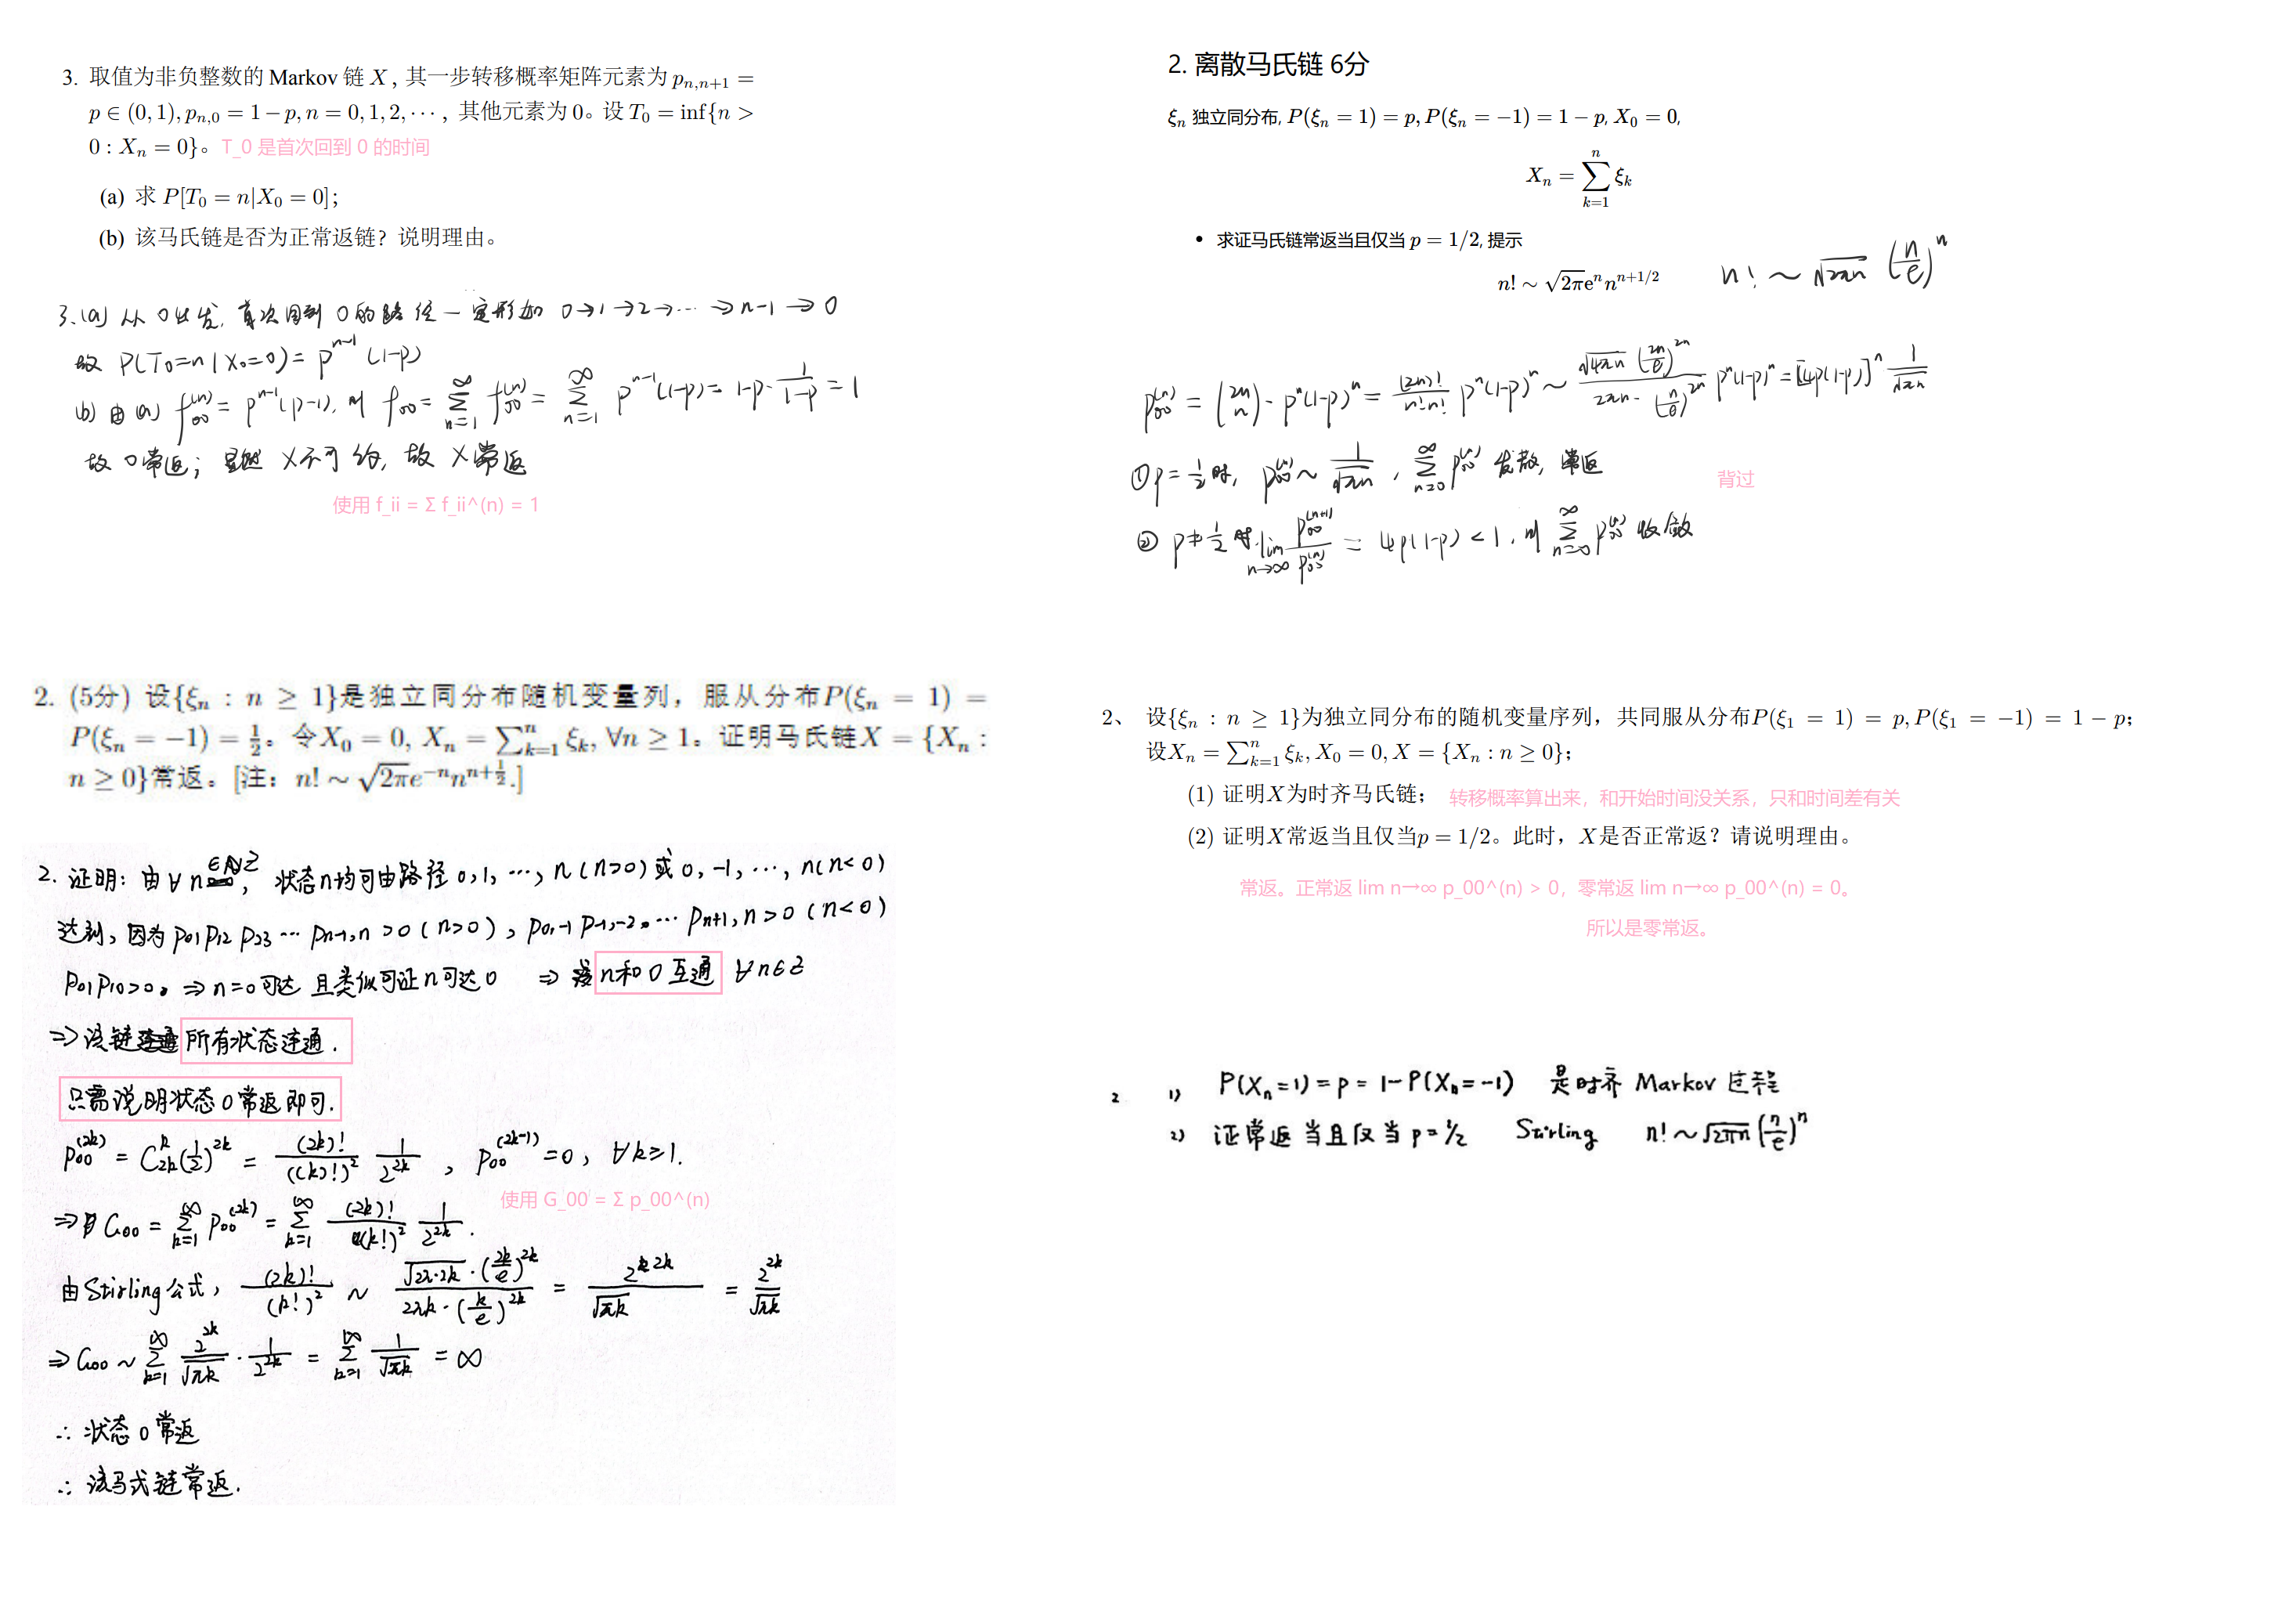 3. 取值为非负整数的 Markov 链 X , 其一步转移概率矩阵元素为 p_{n,n+1} =
p ∈ (0, 1), p_{n,0} = 1 − p, n = 0, 1, 2, ··· , 其他元素为 0。设 T_0 = inf{n >
0 : X_n = 0}。 T_0 是首次回到 0 的时间
(a) 求 P[T_0 = n|X_0 = 0];
(b) 该马氏链是否为正常返链? 说明理由。
3. (a) 从 0 出发, 首次回到 0 的路径一定形如 0→1→2→···→n-1→0
故 P(T_0=n | X_0=0) = p^{n-1} (1-p)
(b) 由 (a) f_{00}^{(n)} = p^{n-1}(p-1), 则 f_{00} = \sum_{n=1}^{∞} f_{00}^{(n)} = \sum_{n=1}^{∞} p^{n-1}(1-p) = 1-p · \frac{1}{1-p} = 1
故 0 常返; 显然 X 不可约, 故 X 常返
使用 f_ii = Σ f_ii^(n) = 1
2. 离散马氏链 6分
ξ_n 独立同分布, P(ξ_n = 1) = p, P(ξ_n = −1) = 1 − p, X_0 = 0,
X_n = \sum_{k=1}^{n} ξ_k
• 求证马氏链常返当且仅当 p = 1/2, 提示
n! ∼ \sqrt{2π}e^n n^{n+1/2}
n! ∼ \sqrt{2πn} (\frac{n}{e})^n
p_{00}^{(n)} = \binom{2n}{n} · p^n(1-p)^n = \frac{(2n)!}{n!n!} p^n(1-p)^n ∼ \frac{\sqrt{4πn} (\frac{2n}{e})^{2n}}{2πn · (\frac{n}{e})^{2n}} p^n(1-p)^n = [4p(1-p)]^n \frac{1}{\sqrt{πn}}
① p = \frac{1}{2} 时, p_{00}^{(n)} ∼ \frac{1}{\sqrt{πn}}, \sum_{n=0}^{∞} p_{00}^{(n)} 发散, 常返
背过
② p ≠ \frac{1}{2} 时 \lim_{n→∞} \frac{p_{00}^{(n+1)}}{p_{00}^{(n)}} = 4p(1-p) < 1, 则 \sum_{n=0}^{∞} p_{00}^{(n)} 收敛
2. (5分) 设{ξ_n : n ≥ 1}是独立同分布随机变量列, 服从分布P(ξ_n = 1) =
P(ξ_n = −1) = \frac{1}{2}。令X_0 = 0, X_n = \sum_{k=1}^{n} ξ_k, ∀n ≥ 1。证明马氏链X = {X_n :
n ≥ 0}常返。[注: n! ∼ \sqrt{2π}e^{−n}n^{n+\frac{1}{2}}.]
2. 证明: 由 ∀ n ∈ Z, 状态n均可由路径 0, 1, ···, n (n>0) 或 0, -1, ···, n (n<0)
达到, 因为 p_{01} p_{12} p_{23} ··· p_{n-1,n} > 0 (n>0), p_{0,-1} p_{-1,-2} ··· p_{n+1,n} > 0 (n<0)
p_{01} p_{10} > 0. ⇒ n=0 可达 且类似可证 n 可达 0 ⇒ n 和 0 互通 ∀n∈Z
⇒ 该链 所有状态连通.
只需说明状态 0 常返即可.
p_{00}^{(2k)} = C_{2k}^{k} (\frac{1}{2})^{2k} = \frac{(2k)!}{((k)!)^2} \frac{1}{2^{2k}}, p_{00}^{(2k-1)} = 0, ∀k≥1.
使用 G_00 = Σ p_00^(n)
⇒ G_{00} = \sum_{k=1}^{∞} p_{00}^{(2k)} = \sum_{k=1}^{∞} \frac{(2k)!}{(k!)^2} \frac{1}{2^{2k}}.
由Stirling公式, \frac{(2k)!}{(k!)^2} ∼ \frac{\sqrt{2π·2k} · (\frac{2k}{e})^{2k}}{2πk · (\frac{k}{e})^{2k}} = \frac{2^{2k}}{\sqrt{πk}} = \frac{2^{2k}}{\sqrt{πk}}
⇒ G_{00} ∼ \sum_{k=1}^{∞} \frac{2^{2k}}{\sqrt{πk}} · \frac{1}{2^{2k}} = \sum_{k=1}^{∞} \frac{1}{\sqrt{πk}} = ∞
∴ 状态 0 常返
∴ 该马氏链常返.
2、 设{ξ_n : n ≥ 1}为独立同分布的随机变量序列, 共同服从分布P(ξ_1 = 1) = p, P(ξ_1 = −1) = 1 − p;
设X_n = \sum_{k=1}^{n} ξ_k, X_0 = 0, X = {X_n : n ≥ 0};
(1) 证明X为时齐马氏链; 转移概率算出来，和开始时间没关系，只和时间差有关
(2) 证明X常返当且仅当p = 1/2。此时, X是否正常返? 请说明理由。
常返。正常返 lim n→∞ p_00^(n) > 0，零常返 lim n→∞ p_00^(n) = 0。
所以是零常返。
2 1) P(X_n=1) = p = 1-P(X_n=-1) 是时齐 Markov 过程
2) 证常返当且仅当 p=1/2 Stirling n! ∼ \sqrt{2πn} (\frac{n}{e})^n